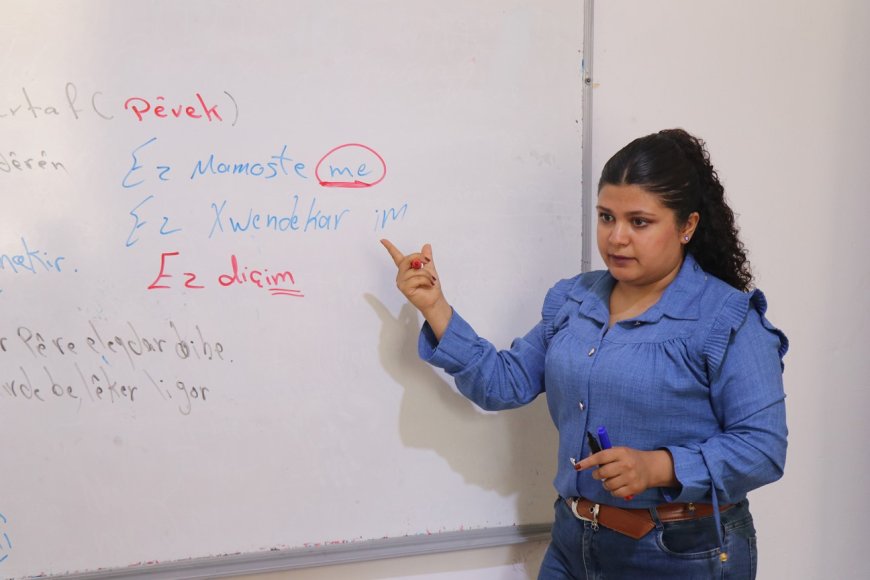 (Pêvek)
dêrên Ez Mamoşte me
Ez Xwendekar im
nekir. Ez diçim
r Pêre eleqdar dibe.
irde be, lêker li gor